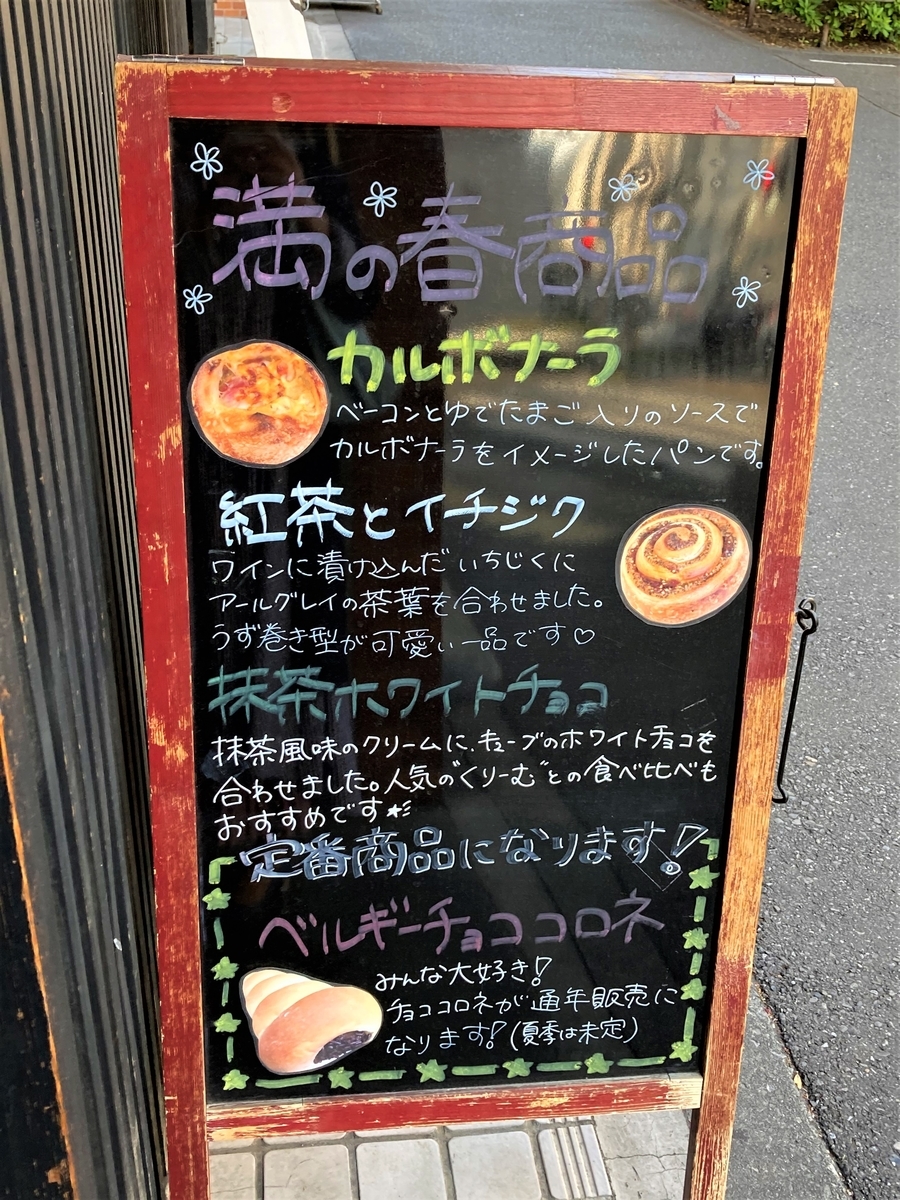 満の春商品
カルボナーラ
ベーコンとゆでたまご入りのソースで
カルボナーラをイメージしたパンです。
紅茶とイチジク
ワインに漬け込んだいちじくに
アールグレイの茶葉を合わせました。
うず巻き型が可愛い一品です♡
抹茶ホワイトチョコ
抹茶風味のクリームに、キューブのホワイトチョコを
合わせました。人気の"くりーむ"との食べ比べも
おすすめです
定番商品になります!
ベルギーチョココロネ
みんな大好き!
チョココロネが通年販売に
なります!(夏季は未定)